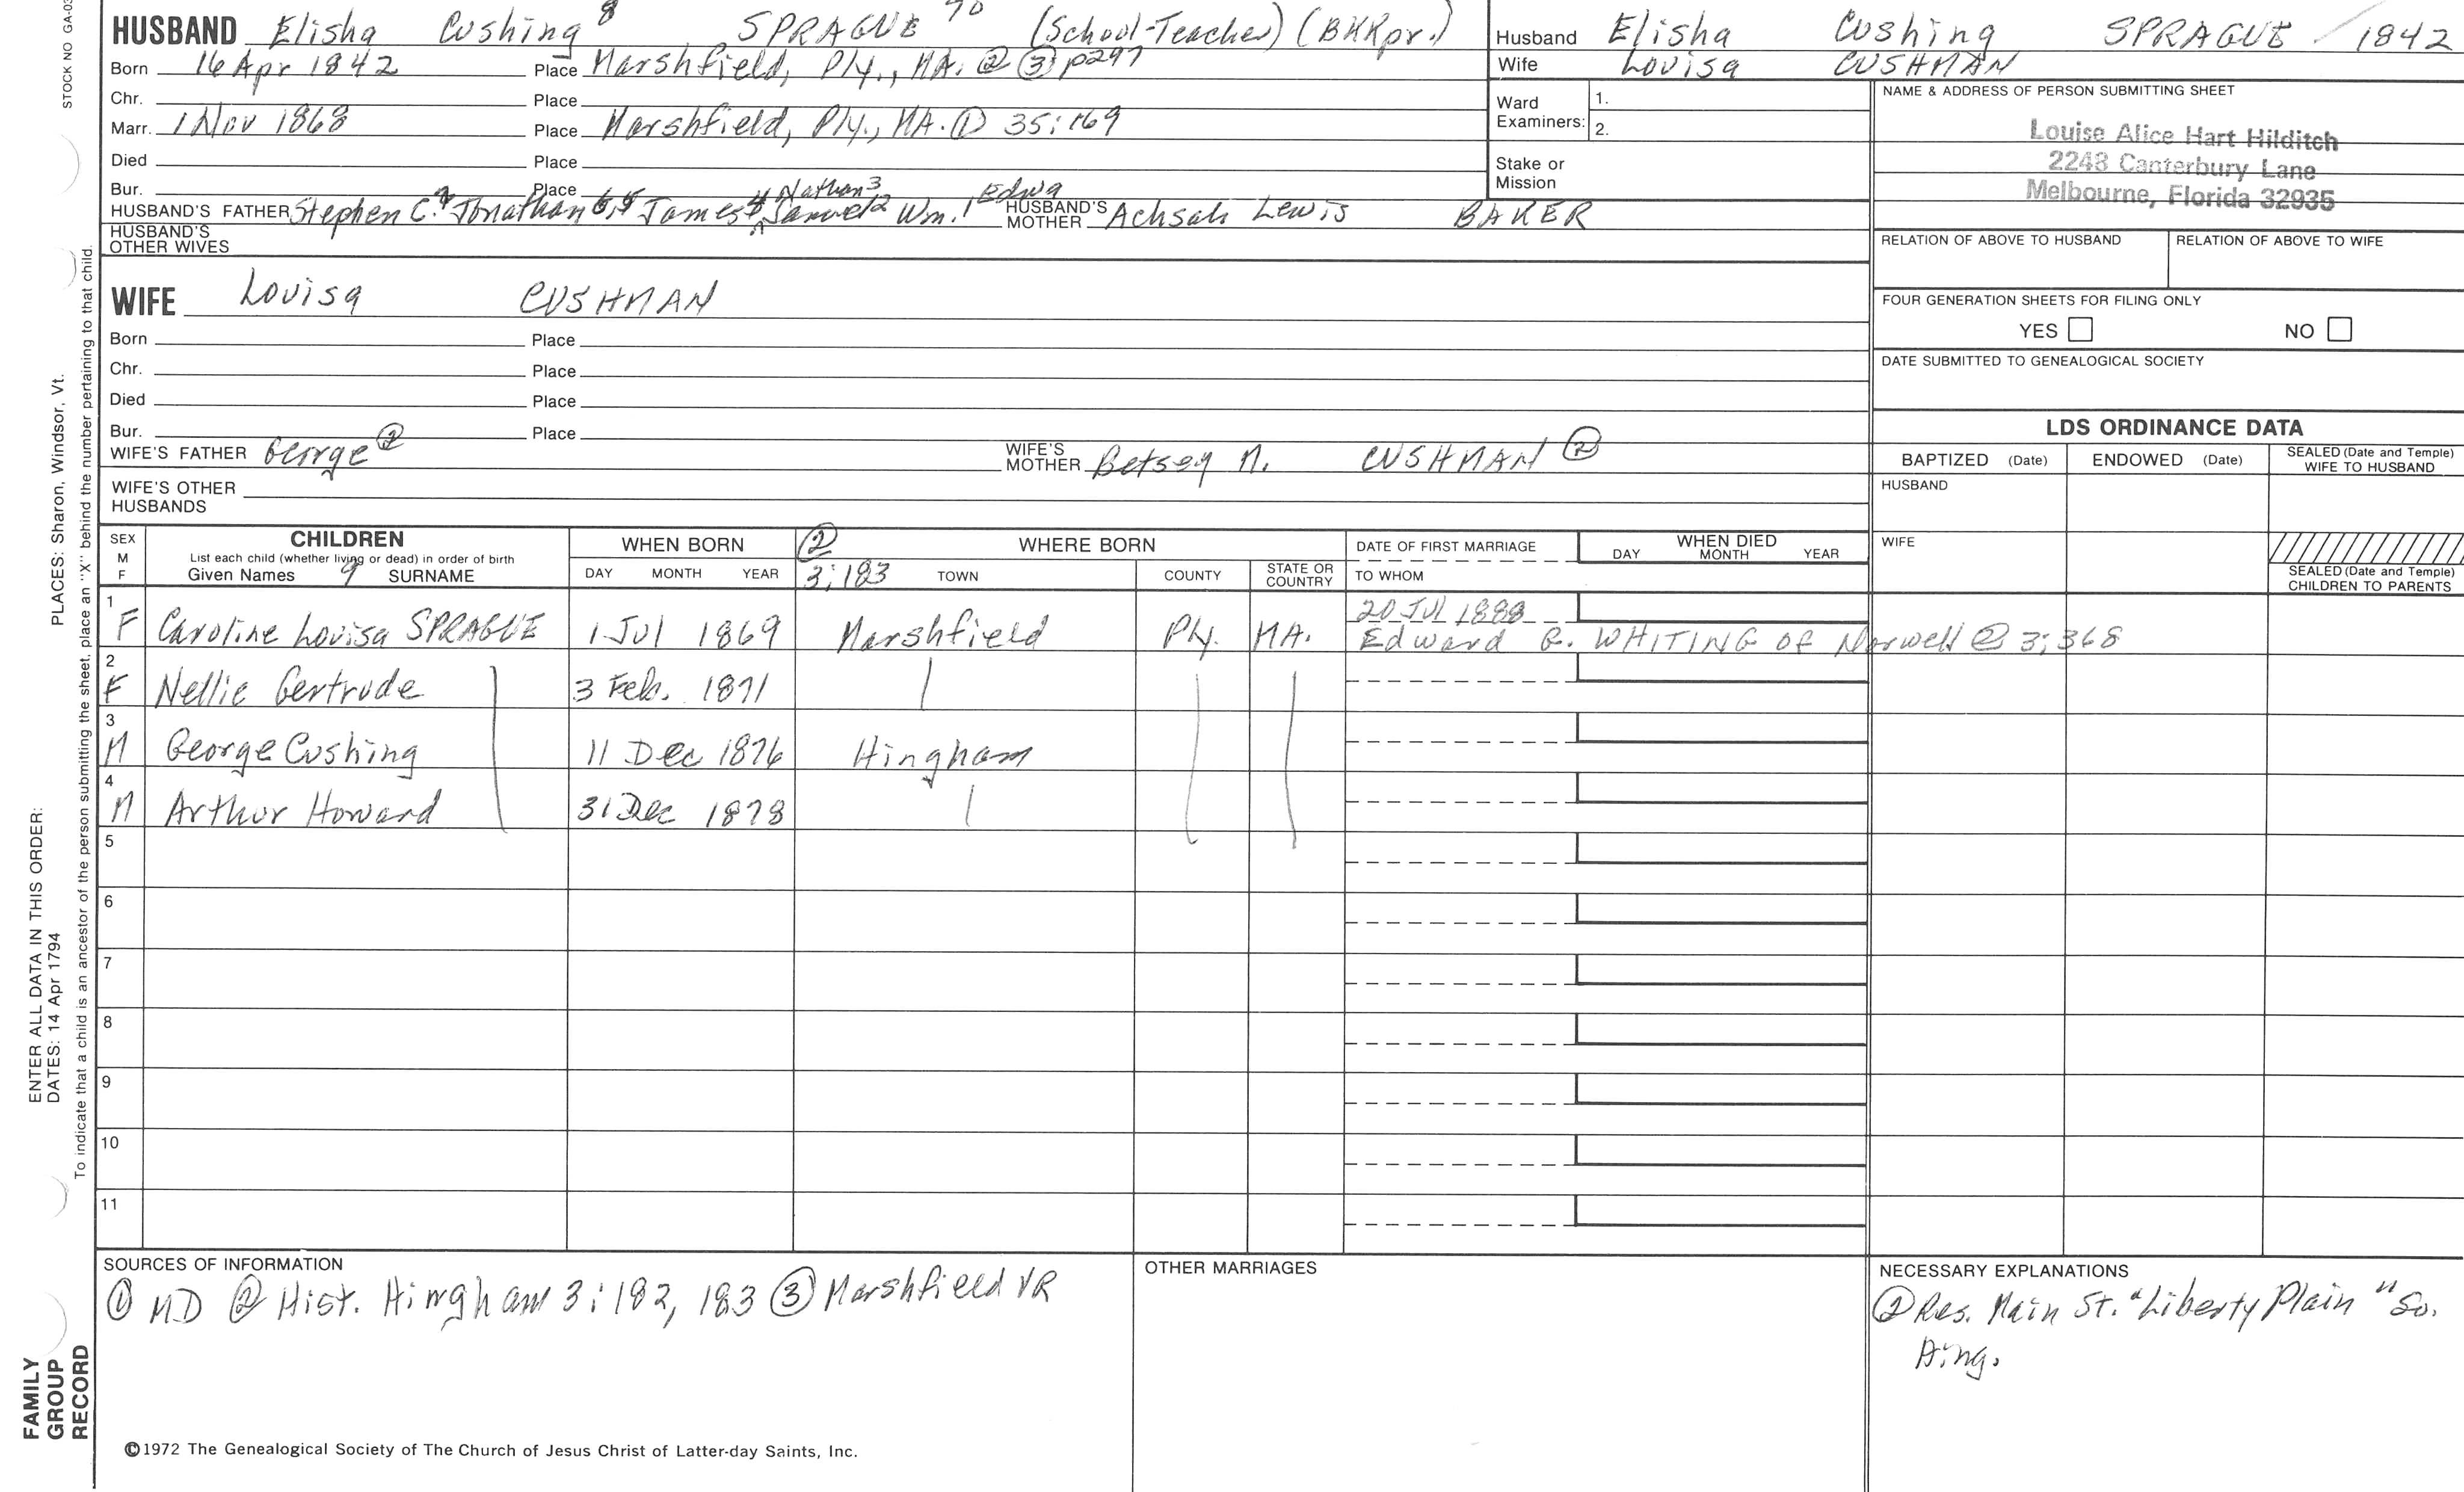 STOCK NO GA-03
HUSBAND Elisha Cushing 8 SPRAGUE 70 (School-Teacher) (BKKpr.)
Born 16 Apr 1842 Place Marshfield, Ply., MA. ② ③ p297
Chr. Place
Marr. 1 Nov 1868 Place Marshfield, Ply., MA. ① 35:169
Died Place
Bur. Place
HUSBAND'S FATHER Stephen C.7 Jonathan 6,5 James4 Nathan3 Samuel2 Wm.1 Edwa HUSBAND'S MOTHER Achsah Lewis BAKER
HUSBAND'S OTHER WIVES
Husband Elisha Cushing SPRAGUE / 1842
Wife Louisa CUSHMAN
Ward Examiners: 1.
2.
Stake or Mission
NAME & ADDRESS OF PERSON SUBMITTING SHEET
Louise Alice Hart Hilditch
2248 Canterbury Lane
Melbourne, Florida 32935
RELATION OF ABOVE TO HUSBAND RELATION OF ABOVE TO WIFE
FOUR GENERATION SHEETS FOR FILING ONLY
YES NO
DATE SUBMITTED TO GENEALOGICAL SOCIETY
WIFE Louisa CUSHMAN
Born Place
Chr. Place
Died Place
Bur. Place
WIFE'S FATHER George ② WIFE'S MOTHER Betsey M. CUSHMAN ②
WIFE'S OTHER HUSBANDS
LDS ORDINANCE DATA
BAPTIZED (Date) ENDOWED (Date) SEALED (Date and Temple) WIFE TO HUSBAND
HUSBAND
WIFE
SEALED (Date and Temple) CHILDREN TO PARENTS
SEX M F CHILDREN
List each child (whether living or dead) in order of birth
Given Names 9 SURNAME
WHEN BORN
DAY MONTH YEAR
② 3:183
WHERE BORN
TOWN COUNTY STATE OR COUNTRY
DATE OF FIRST MARRIAGE
TO WHOM
WHEN DIED
DAY MONTH YEAR
1 F Caroline Louisa SPRAGUE 1 Jul 1869 Marshfield Ply. MA. 20 Jul 1888
Edward G. WHITING of Norwell ② 3:368
2 F Nellie Gertrude 3 Feb. 1871
3 M George Cushing 11 Dec 1876 Hingham
4 M Arthur Howard 31 Dec 1878
5
6
7
8
9
10
11
SOURCES OF INFORMATION
① MD ② Hist. Hingham 3:182, 183 ③ Marshfield VR
OTHER MARRIAGES
NECESSARY EXPLANATIONS
② Res. Main St. "Liberty Plain" So.
Hing.
©1972 The Genealogical Society of The Church of Jesus Christ of Latter-day Saints, Inc.
FAMILY
GROUP
RECORD
ENTER ALL DATA IN THIS ORDER:
DATES: 14 Apr 1794
PLACES: Sharon, Windsor, Vt.
To indicate that a child is an ancestor of the person submitting the sheet, place an "X" behind the number pertaining to that child.